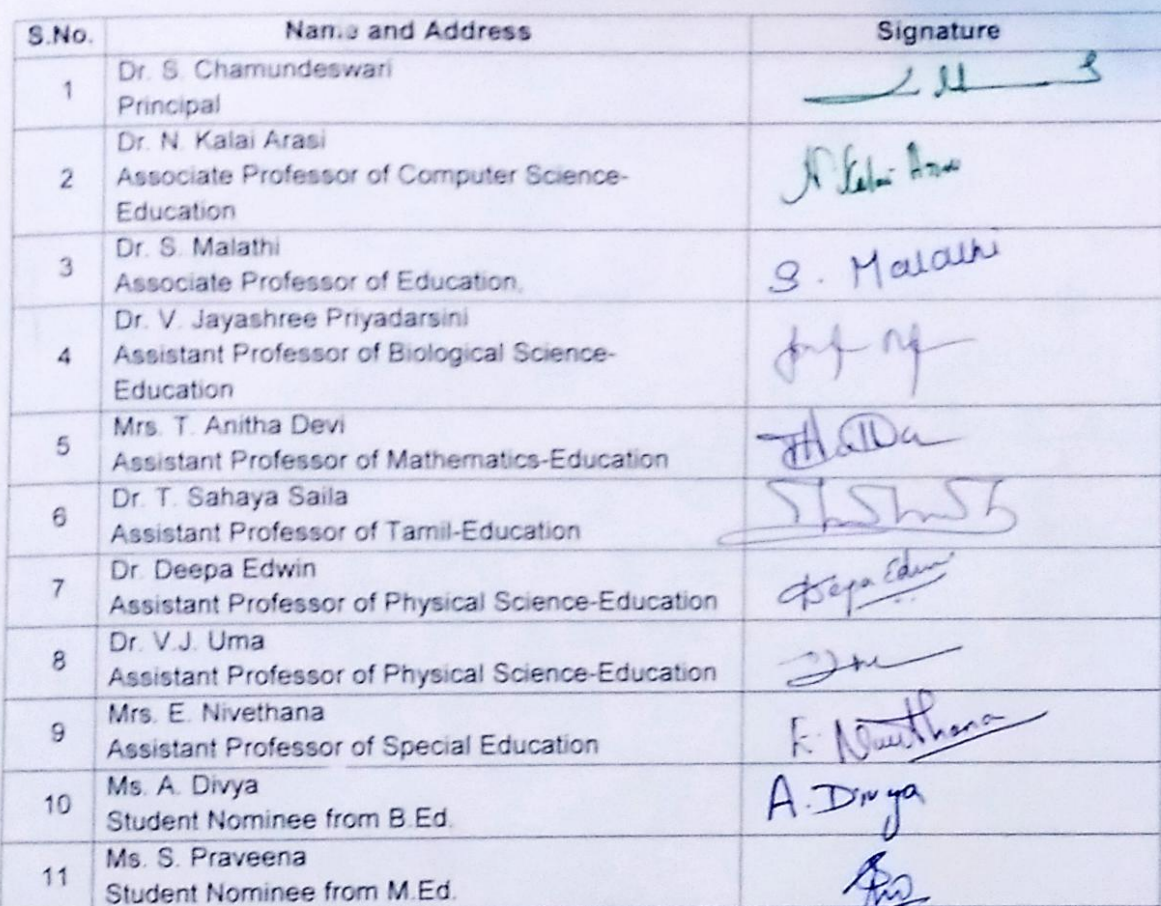 S.No. Name and Address Signature
1 Dr. S. Chamundeswari
Principal
Dr. N. Kalai Arasi
2 Associate Professor of Computer Science- N Kalai Arasi
Education
3 Dr. S. Malathi
Associate Professor of Education, S. Malathi
Dr. V. Jayashree Priyadarsini
4 Assistant Professor of Biological Science-
Education
5 Mrs. T. Anitha Devi
Assistant Professor of Mathematics-Education
6 Dr. T. Sahaya Saila
Assistant Professor of Tamil-Education
7 Dr. Deepa Edwin Deepa Edwin
Assistant Professor of Physical Science-Education
8 Dr. V.J. Uma
Assistant Professor of Physical Science-Education
9 Mrs. E. Nivethana E. Nivethana
Assistant Professor of Special Education
10 Ms. A. Divya A. Divya
Student Nominee from B.Ed.
11 Ms. S. Praveena
Student Nominee from M.Ed.